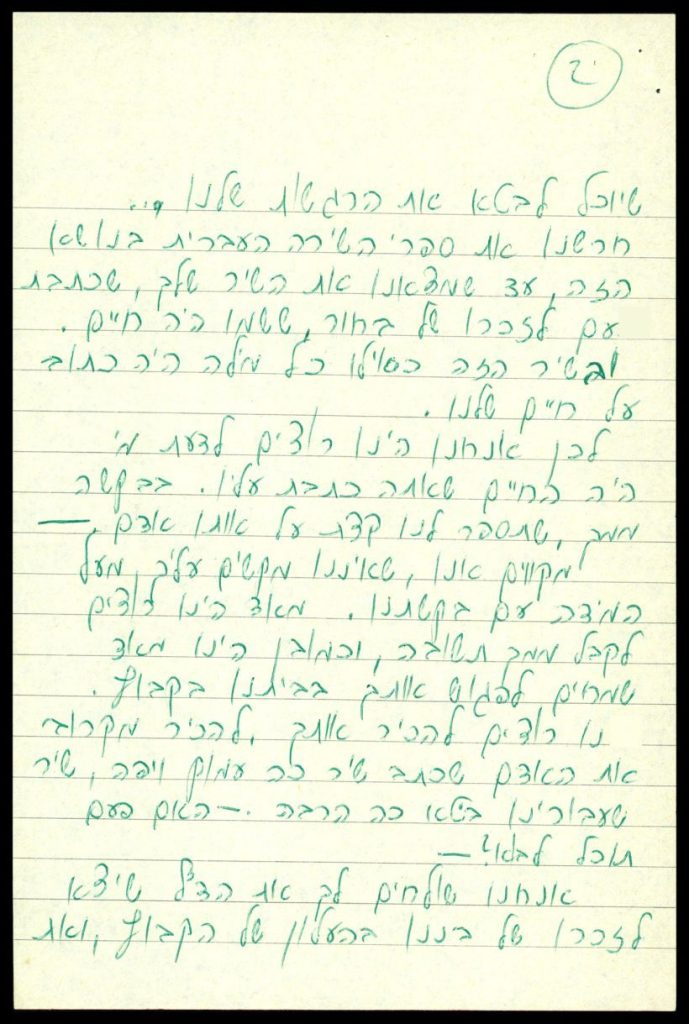 2
שיוכל לבטא את הרגשות שלנו ...
חרשנו את ספרי השירה העברית בנושא
הזה, עד שמצאנו את השיר שלך, שכתבת
עם לזכרו של בחור, ששמו היה חיים.
ובשיר הזה כאילו כל מילה היה כתוב
על חיים שלנו.
לכן אנחנו היינו רוצים לדעת מי
היה החיים שאתה כתבת עליו. בבקשה
ממך, שתספר לנו קצת על אותו אדם. —
מקווים אנו, שאיננו מקשים עליך מעל
המידה עם בקשתנו. מאד היינו רוצים
לקבל ממך תשובה, וכמובן היינו מאד
שמחים לפגוש אותך בביתנו בקבוץ.
נו רוצים להכיר אותך. להכיר מקרוב
את האדם שכתב שיר כה עמוק ויפה, שיר
שעבורינו ביטא כה הרבה. — האם פעם
תוכל לבוא? —
אנחנו שולחים לך את הדף שיצא
לזכרו של ביננו בהעלון של הקבוץ, ואת